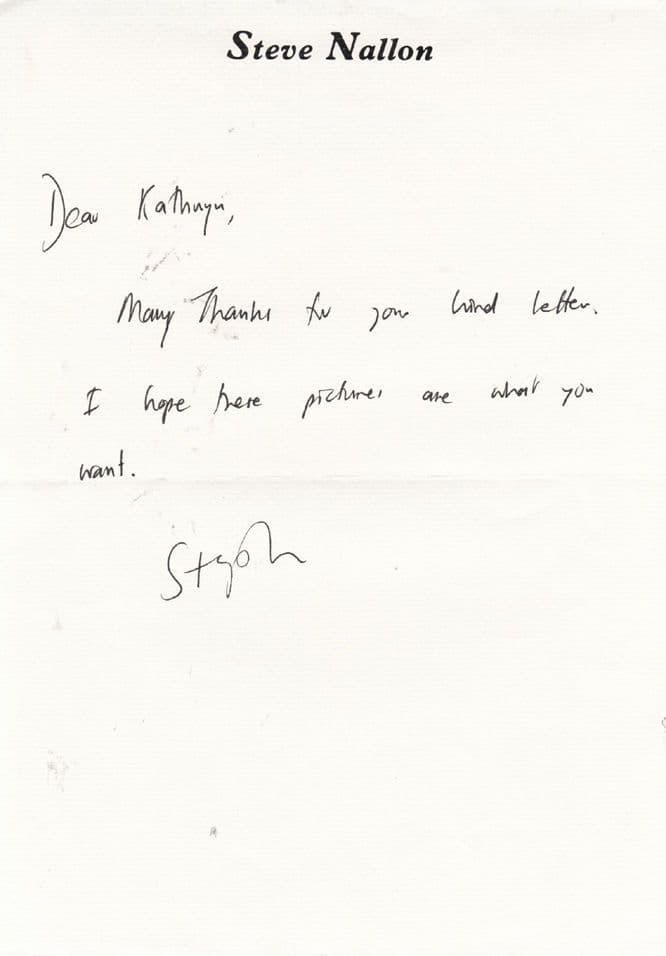 Steve Nallon
Dear Kathryn,
Many Thanks for your kind letter.
I hope these pictures are what you
want.
Stephen